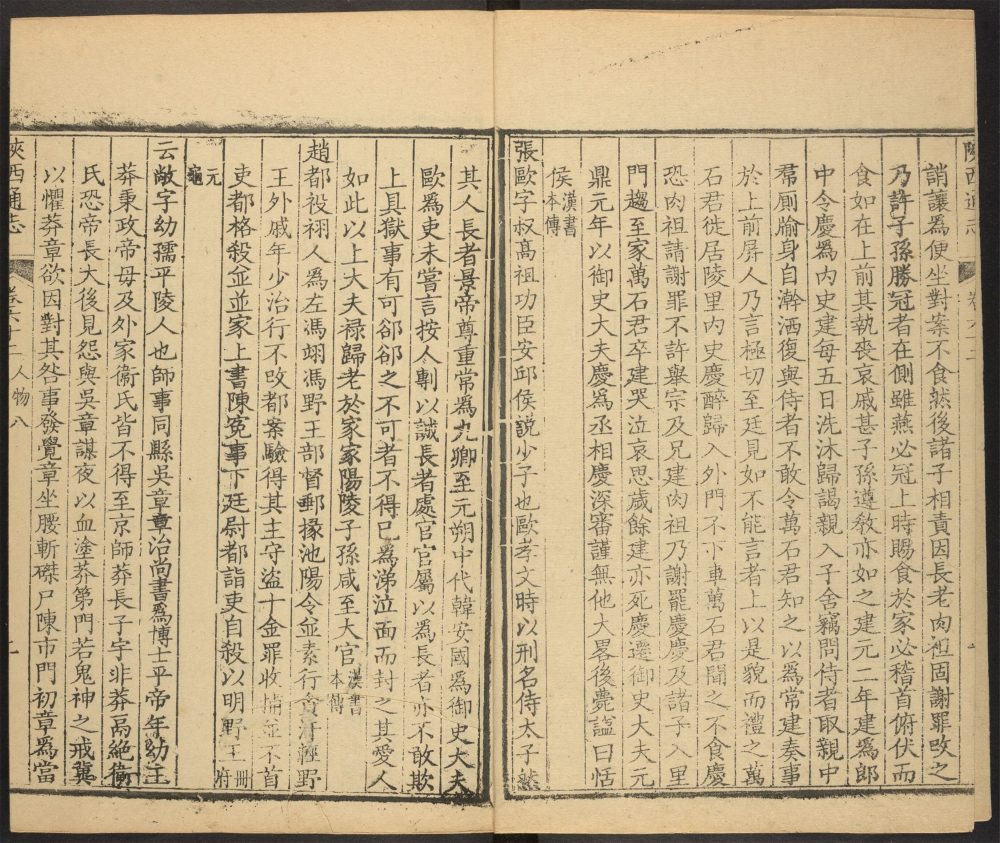 陝西通志 卷六十二
誚讓爲便坐對案不食然後諸子相責因長老肉袒固謝罪改之
乃許子孫勝冠者在側雖燕必冠上時賜食於家必稽首俯伏而
食如在上前其執喪哀戚甚子孫遵教亦如之建元二年建爲郎
中令慶爲内史建每五日洗沐歸謁親入子舍竊問侍者取親中
帬厠牏身自澣洒復與侍者不敢令萬石君知之以爲常建奏事
於上前屏人乃言極切至廷見如不能言者上以是親而禮之萬
石君徙居陵里内史慶醉歸入外門不下車萬石君聞之不食慶
恐肉袒請謝罪不許舉宗及兄建肉袒乃謝罷慶慶及諸子入里
門趨至家萬石君卒建哭泣哀思歲餘建亦死慶遷御史大夫元
鼎元年以御史大夫慶爲丞相慶深審謹無他大畧後薨諡曰恬
侯漢書本傳
張歐字叔高祖功臣安邱侯説少子也歐孝文時以刑名侍太子然
其人長者景帝尊重常爲九卿至元朔中代韓安國爲御史大夫
歐爲吏未嘗言按人剸以誠長者處官官屬以爲長者亦不敢欺
上具獄事有可郤郤之不可者不得已爲涕泣面而封之其愛人
如此以上大夫禄歸老於家家陽陵子孫咸至大官漢書本傳
趙都祋祤人爲左馮翊馮野王部督郵掾池陽令並素行貪汙輕野
王外戚年少治行不改都案驗得其主守盜十金罪收捕並不首
吏都格殺並並家上書陳寃事下廷尉都詣吏自殺以明野王冊府
元龜
云敞字幼孺平陵人也師事同縣吳章章治尚書爲博士平帝年幼王
莽秉政帝母及外家衞氏皆不得至京師莽長子宇非莽鬲絶衞
氏恐帝長大後見怨與吳章謀夜以血塗莽第門若鬼神之戒冀
以懼莽章欲因對其咎事發覺章坐腰斬磔尸陳市門初章爲當
陝西通志 卷六十二 人物八 一